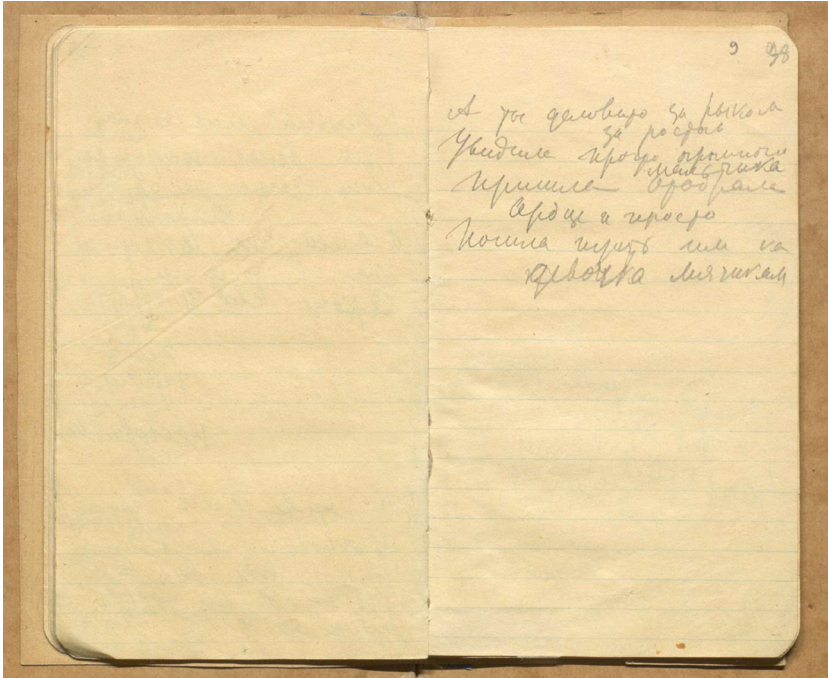 9 38
А ты деловито за рыком
за ростом
Увидела просто огромного
мальчика
Пришла отобрала
Сердце и просто
Пошла играть им ка
к девочка мячикам